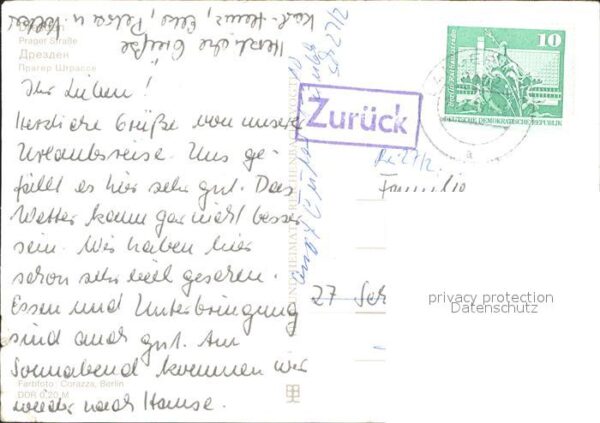 Karl-Heinz, Elso, Petra u.
Herzliche Grüße
Dresden
Prager Straße
Дрезден
Прагер Штрассе
Ihr Lieben!
Herzliche Grüße von unserer
Urlaubsreise. Uns ge-
fällt es hier sehr gut. Das
Wetter kann gar nicht besser
sein. Wir haben hier
schon sehr viel gesehen.
Essen und Unterbringung
sind auch gut. Am
Sonnabend kommen wir
wieder nach Hause.
Farbfoto: Corazza, Berlin
DDR 0,20 M
Zurück
10
DEUTSCHE DEMOKRATISCHE REPUBLIK
Familie
27 Sch
privacy protection
Datenschutz